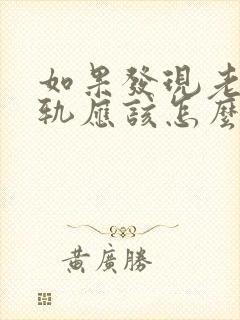 如果發現老
軌應該怎麼
黃廣勝